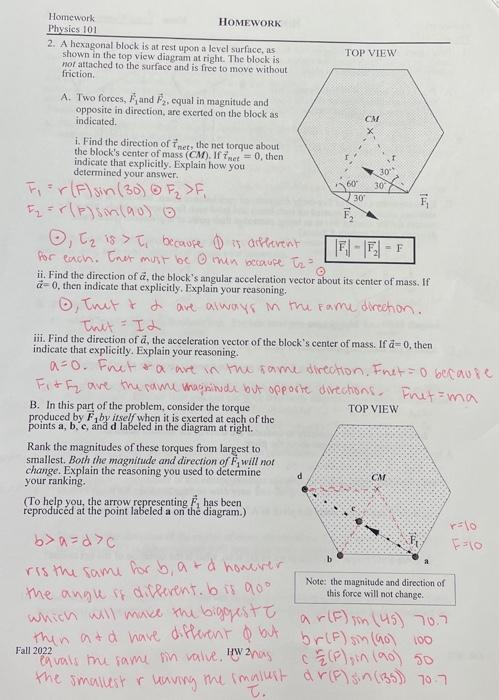 Homework
Physics 101
HOMEWORK
2. A hexagonal block is at rest upon a level surface, as
shown in the top view diagram at right. The block is
not attached to the surface and is free to move without
friction.
TOP VIEW
A. Two forces, F⃗₁ and F⃗₂, equal in magnitude and
opposite in direction, are exerted on the block as
indicated.
CM
i. Find the direction of τ⃗net, the net torque about
the block's center of mass (CM). If τ⃗net = 0, then
indicate that explicitly. Explain how you
determined your answer.
r
r
30°
60°
30°
30°
F⃗₁
F⃗₂
F₁ = r(F)sin(30) ⊙ F₂ > F₁
F₂ = r(F)sin(90) ⊙
⊙, τ₂ is > τ₁ because Φ is different
for each. τnet must be ⊙ then because τ₂ = ⊙
|F⃗₁| = |F⃗₂| = F
ii. Find the direction of α⃗, the block's angular acceleration vector about its center of mass. If
α⃗ = 0, then indicate that explicitly. Explain your reasoning.
⊙, τnet & α are always in the same direction.
τnet = Iα
iii. Find the direction of a⃗, the acceleration vector of the block's center of mass. If a⃗ = 0, then
indicate that explicitly. Explain your reasoning.
a=0. Fnet & a are in the same direction. Fnet = 0 because
F₁ + F₂ are the same magnitude but opposite directions. Fnet = ma
B. In this part of the problem, consider the torque
produced by F⃗₁ by itself when it is exerted at each of the
points a, b, c, and d labeled in the diagram at right.
TOP VIEW
Rank the magnitudes of these torques from largest to
smallest. Both the magnitude and direction of F⃗₁ will not
change. Explain the reasoning you used to determine
your ranking.
(To help you, the arrow representing F⃗₁ has been
reproduced at the point labeled a on the diagram.)
d
CM
c
F⃗₁
b
a
r=10
F=10
b>a=d>c
r is the same for b, a + d however
the angle is different. b is 90°
which will make the biggest τ
then a + d have different Φ but
equals the same sin value. C has
the smallest r having the smallest
τ.
Note: the magnitude and direction of
this force will not change.
a r(F) sin(45) 70.7
b r(F) sin(90) 100
c r/2(F) sin(90) 50
d r(F) sin(135) 70.7
Fall 2022
HW 2